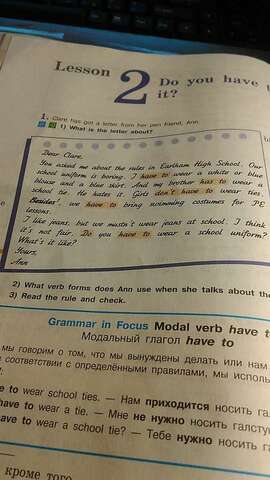 Lesson 2 Do you have t
it?
1. Clare has got a letter from her pen friend, Ann.
1) What is the letter about?
Dear Clare,
You asked me about the rules in Eartham High School. Our
school uniform is boring. I have to wear a white or blue
blouse and a blue skirt. And my brother has to wear a
school tie. He hates it. Girls don't have to wear a tie.
Besides¹, we have to bring swimming costumes for PE
lessons.
I like jeans, but we mustn't wear jeans at school. I think
it's not fair. Do you have to wear a school uniform?
What's it like?
Yours,
Ann
2) What verb forms does Ann use when she talks about the
3) Read the rule and check.
Grammar in Focus Modal verb have t
Модальный глагол have to
мы говорим о том, что мы вынуждены делать или нам
соответствии с определёнными правилами, мы исполь
e to wear school ties. — Нам приходится носить га
have to wear a tie. — Мне не нужно носить галсту
have to wear a school tie? — Тебе нужно носить га
кроме того